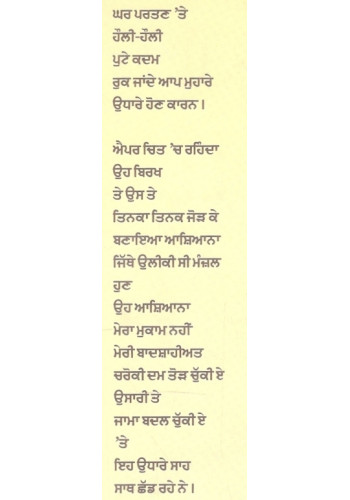 ਘਰ ਪਰਤਣ 'ਤੇ
ਹੌਲੀ-ਹੌਲੀ
ਪੁਟੇ ਕਦਮ
ਰੁਕ ਜਾਂਦੇ ਆਪ ਮੁਹਾਰੇ
ਉਧਾਰੇ ਹੋਣ ਕਾਰਨ।

ਐਪਰ ਚਿਤ 'ਚ ਰਹਿੰਦਾ
ਉਹ ਬਿਰਖ
ਤੇ ਉਸ ਤੇ
ਤਿਨਕਾ ਤਿਨਕ ਜੋੜ ਕੇ
ਬਣਾਇਆ ਆਸ਼ਿਆਨਾ
ਜਿੱਥੇ ਉਲੀਕੀ ਸੀ ਮੰਜ਼ਲ
ਹੁਣ
ਉਹ ਆਸ਼ਿਆਨਾ
ਮੇਰਾ ਮੁਕਾਮ ਨਹੀਂ
ਮੇਰੀ ਬਾਦਸ਼ਾਹੀਅਤ
ਚਰੋਕੀ ਦਮ ਤੋੜ ਚੁੱਕੀ ਏ
ਉਸਾਰੀ ਤੇ
ਜਾਮਾ ਬਦਲ ਚੁੱਕੀ ਏ
'ਤੇ
ਇਹ ਉਧਾਰੇ ਸਾਹ
ਸਾਥ ਛੱਡ ਰਹੇ ਨੇ।